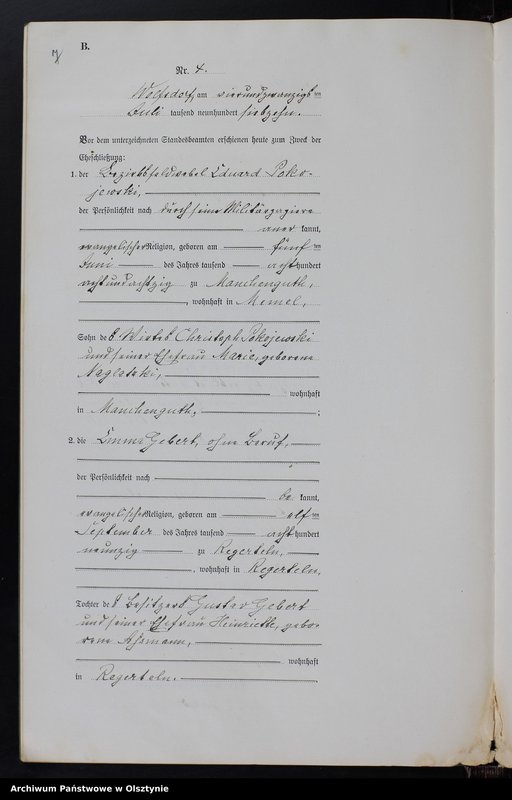 B.
Nr. 4.
Wolfsdorf, am vierundzwanzigsten
Juli tausend neunhundert siebzehn.
Vor dem unterzeichneten Standesbeamten erschienen heute zum Zweck der
Eheschließung:
1. der Bezirksfeldwebel Eduard Poko-
jewski,
der Persönlichkeit nach durch seine Militärpapiere
aner kannt,
evangelischer Religion, geboren am fünften
Juni des Jahres tausend achthundert
achtundachtzig zu Manchenguth,
, wohnhaft in Memel,
Sohn des Wirts Christoph Pokojewski
und seiner Ehefrau Marie, geborene
wohnhaft
in Manchenguth, ;
2. die Emma Gebert, ohne Beruf,
der Persönlichkeit nach
be kannt,
evangelischer Religion, geboren am elften
September des Jahres tausend achthundert
neunzig zu Regerteln,
, wohnhaft in Regerteln,
Tochter des Besitzers Gustav Gebert
und seiner Ehefrau Heinriette, gebo-
rene
wohnhaft
in Regerteln.
Archiwum Państwowe w Olsztynie